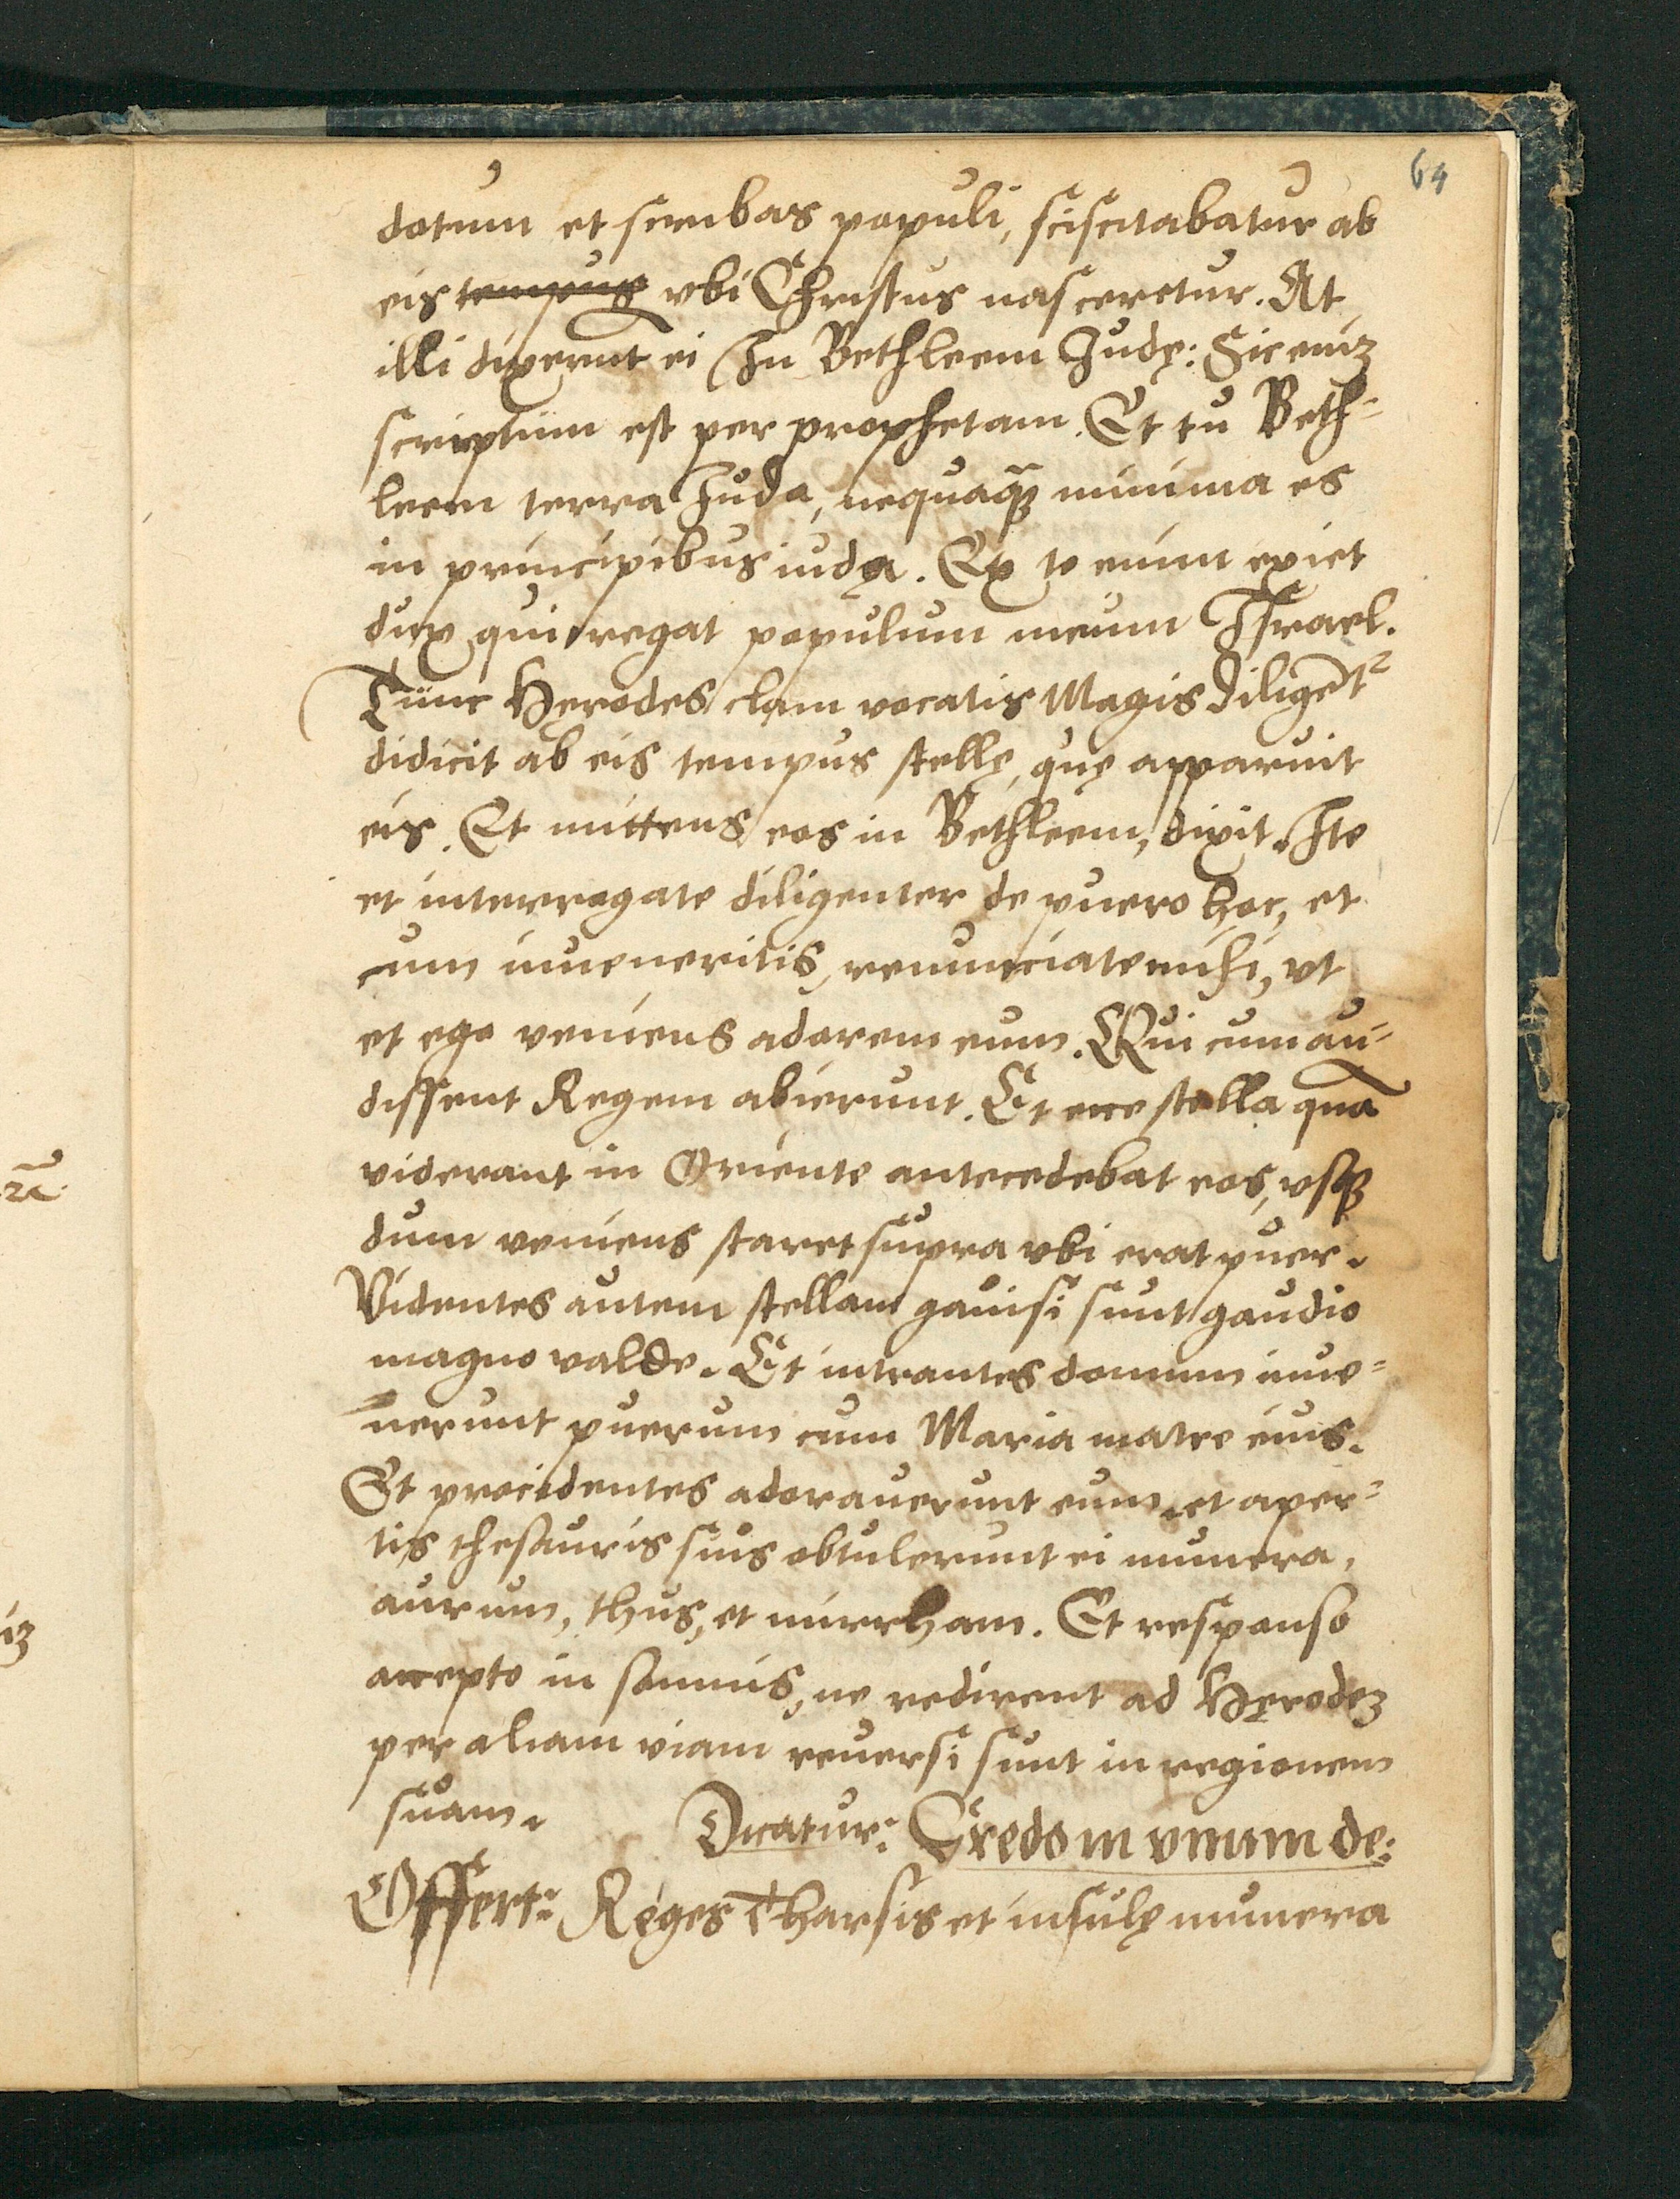 64
dotum et scribas populi, sciscitabatur ab
eis tempus vbi Christus nasceretur. At
illi dixerunt ei In Bethleem Judę: Sic enīz
scriptum est per prophetam. Et tu Beth=
leem terra Juda, nequaq̃ȝ minima es
in principibus iuda. Ex te enim exiet
dux qui regat populum meum Israel.
Tunc Hęrodes clam vocatis Magis diligēt²
didicit ab eis tempus stellę, quę apparuit
eis. Et mittens eos in Bethleem, dixit. Ite
et interrogate diligenter de puero hoc, et
cum inueneritis, renunciate mihi, vt
et ego veniens adorem eum. Qui cum au=
dissent Regem abierunt. Et ecce stella quā
viderant in Oriente antecedebat eos, vsqȝ
dum veniens staret supra vbi erat puer.
Videntes autem stellam gauisi sunt gaudio
magno valde. Et intrantes domum inue=
nerunt puerum cum Maria matre eius.
Et procidentes adorauerunt eum, et aper=
tis thesauris suis obtulerunt ei munera,
aurum, thus, et mirrham. Et responso
accepto in somnis, ne redirent ad Hęrodez
per aliam viam reuersi sunt in regionem
suam. Dicatur: Credo in vnum de:
Offert: Reges Tharsis et insulę munera